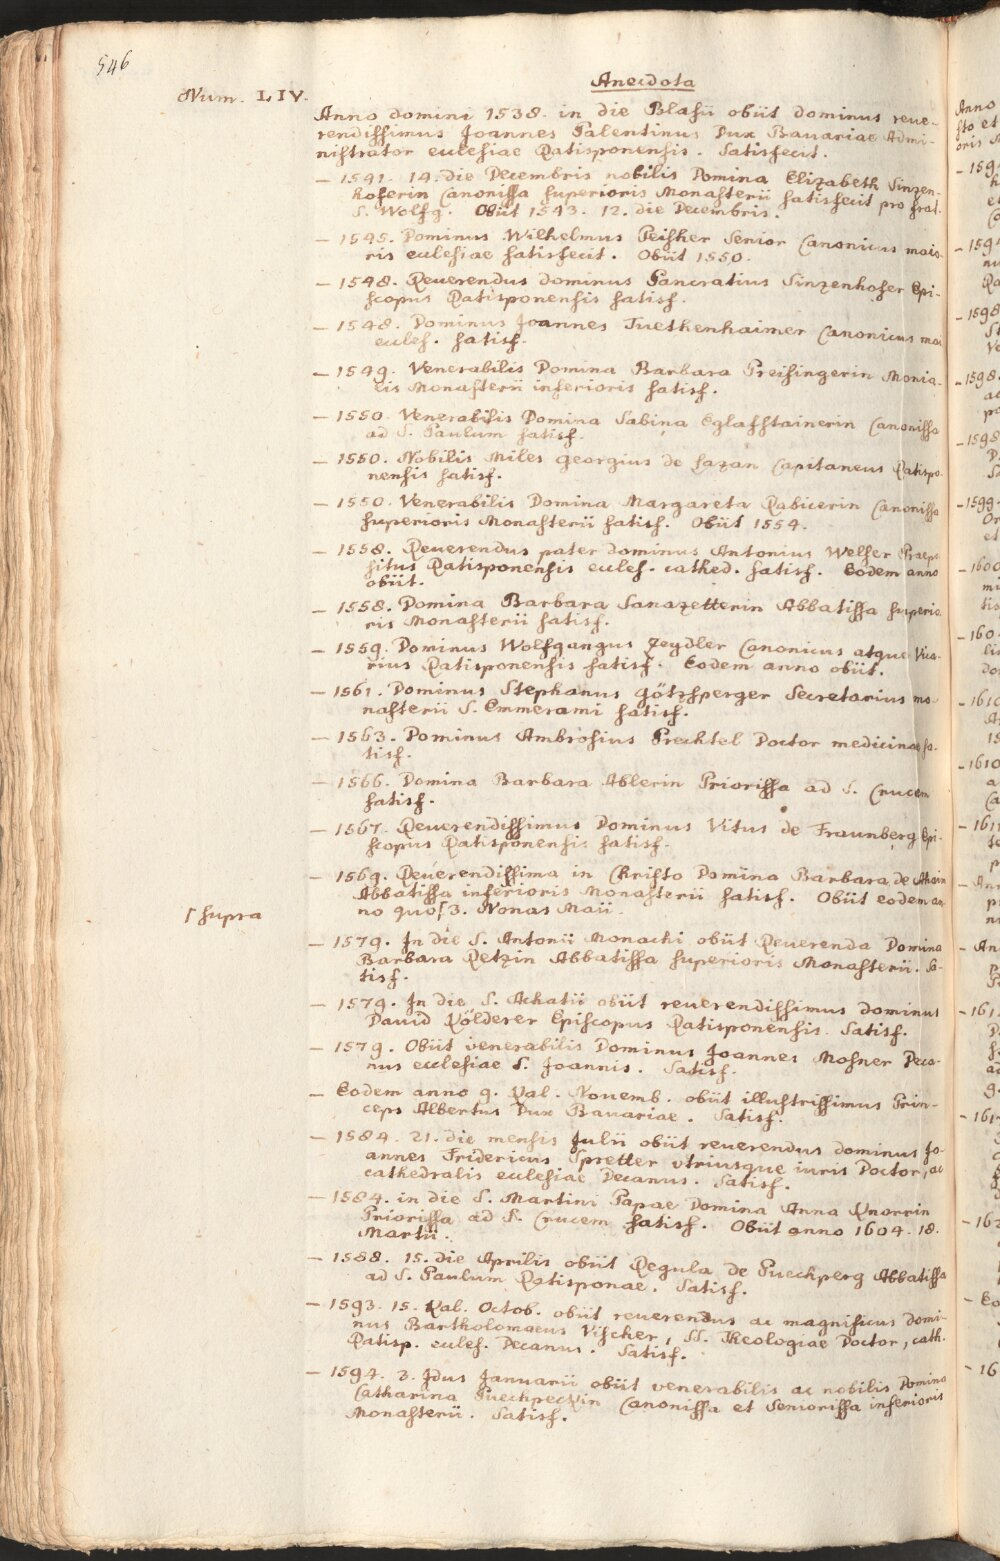 546
Anecdota
Num. LIV.
Anno domini 1538. in die Blasii obiit dominus reue-
rendissimus Joannes Palentinus Dux Bauariae Admi-
nistrator eclesiae Ratisponensis. Satisfecit.
– 1541. 14. die Decembris nobilis Domina Elizabeth Sinzen-
hoferin Canonissa superioris Monasterii satisfecit pro frat.
S. Wolfg. Obiit 1543. 12. die Decembris.
– 1545. Dominus Wilhelmus Peisser Senior Canonicus maio-
ris eclesiae satisfecit. Obiit 1550.
– 1548. Reuerendus dominus Pancratius Sinzenhofer Epi-
scopus Ratisponensis satisf.
– 1548. Dominus Joannes Tuethenhaimer Canonicus mai
eccles. satisf.
– 1549. Venerabilis Domina Barbara Preisingerin Monia-
lis Monasterii inferioris satisf.
– 1550. Venerabilis Domina Sabina Eglasstainerin Canonissa
ad S. Paulum satisf.
– 1550. Nobilis Miles Georgius de Sazan Capitaneus Ratispo-
nensis satisf.
– 1550. Venerabilis Domina Margareta Rabicerin Canonissa
superioris Monasterii satisf. Obiit 1554.
– 1558. Reuerendus pater dominus Antonius Welser Praepo
situs Ratisponensis eccles. cathed. satisf. Eodem anno
obiit.
– 1558. Domina Barbara Sanazetterin Abbatissa superio
ris Monasterii satisf.
– 1559. Dominus Wolfgangus Zeydler Canonicus atque Vica-
rius Ratisponensis satisf. Eodem anno obiit.
– 1561. Dominus Stephanus Götzsperger Secretarius mo-
nasterii S. Emmerami satisf.
– 1563. Dominus Ambrosius Prechtel Doctor medicinae sa-
tisf.
– 1566. Domina Barbara Ablerin Priorissa ad S. Crucem
satisf.
– 1567. Reuerendissimus Dominus Vitus de Fraunberg Epi-
scopus Ratisponensis satisf.
– 1569. Reuerendissima in Christo Domina Barbara de Ahain
Abbatissa inferioris Monasterii satisf. Obiit eodem an-
no quo⌈ 3. Nonas Maii.
⌈ supra
– 1579. In die S. Antonii Monachi obiit Reuerenda Domina
Barbara Retzin Abbatissa superioris Monasterii. Sa-
tisf.
– 1579. In die S. Achatii obiit reuerendissimus dominus
Dauid Kölderer Episcopus Ratisponensis. Satisf.
– 1579. Obiit venerabilis Dominus Joannes Mosner Deca-
nus ecclesiae S. Joannis. Satisf.
– Eodem anno 9. Kal. Nouemb. obiit illustrissimus Prin-
ceps Albertus Dux Bauariae. Satisf.
– 1584. 21. die mensis Julii obiit reuerendus dominus Jo-
annes Fridericus Spretter vtriusque iuris Doctor, ac
cathedralis eclesiae Decanus. Satisf.
– 1584. in die S. Martini Papae Domina Anna Knorrin
Priorissa ad S. Crucem satisf. Obiit anno 1604. 18.
Martii.
– 1588. 15. die Aprilis obiit Regula de Puechperg Abbatissa
ad S. Paulum Ratisponae. Satisf.
– 1593. 15. Kal. Octob. obiit reuerendus ac magnificus Domi-
nus Bartholomaeus Vischer, SS. Theologiae Doctor, cath.
Ratisp. eccles. Decanus. Satisf.
– 1594. 3. Idus Januarii obiit venerabilis ac nobilis Domina
Catharina Puechpeckin Canonissa et Seniorissa inferioris
Monasterii. Satisf.